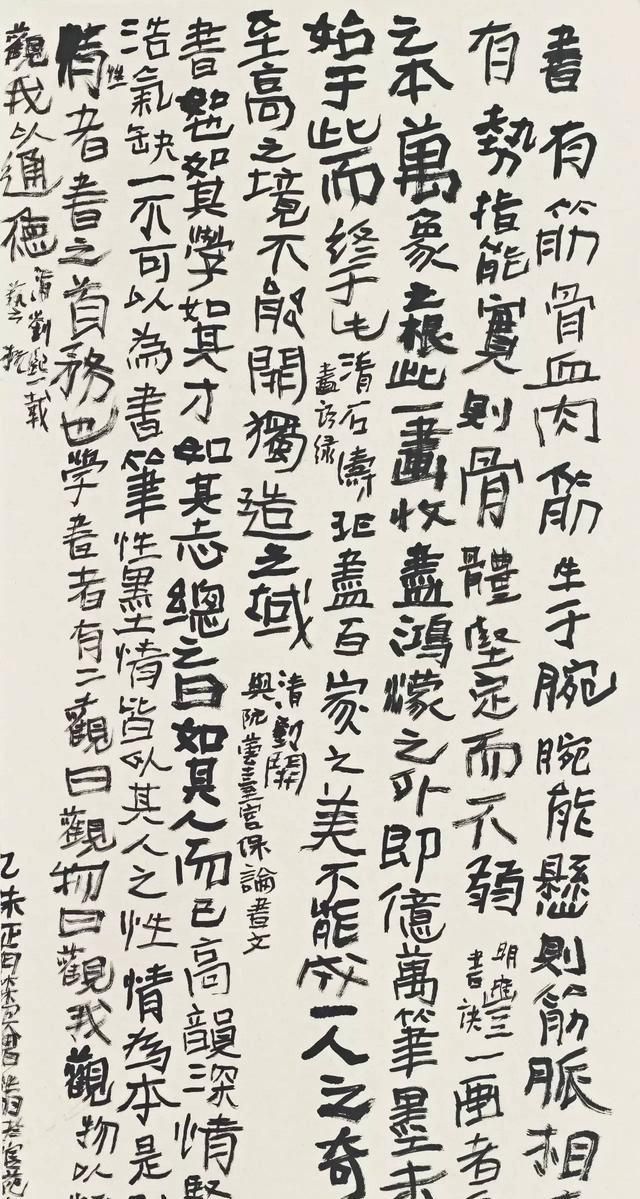 書有筋骨血肉筋生于腕腕能懸則筋脈相
有勢指能實則骨體堅定而不弱
明豐
書訣
一画者
之本萬象之根此一畫收盡鴻濛之外即億萬筆墨未
始于此而終于此
清石濤
畫語録
非盡百家之美不能成一人之奇
至高之境不能開獨造之域
清劉開
與阮芸臺宮保論書文
書如也如其學如其才如其志總之曰如其人而已高韻深情堅
浩氣缺一不可以為書筆性墨情皆以其人之性情為本是則
性
情者書之首務也学書者有二觀曰觀物曰觀我觀物以類
觀我以通德
清劉熙載
藝概
乙未正月